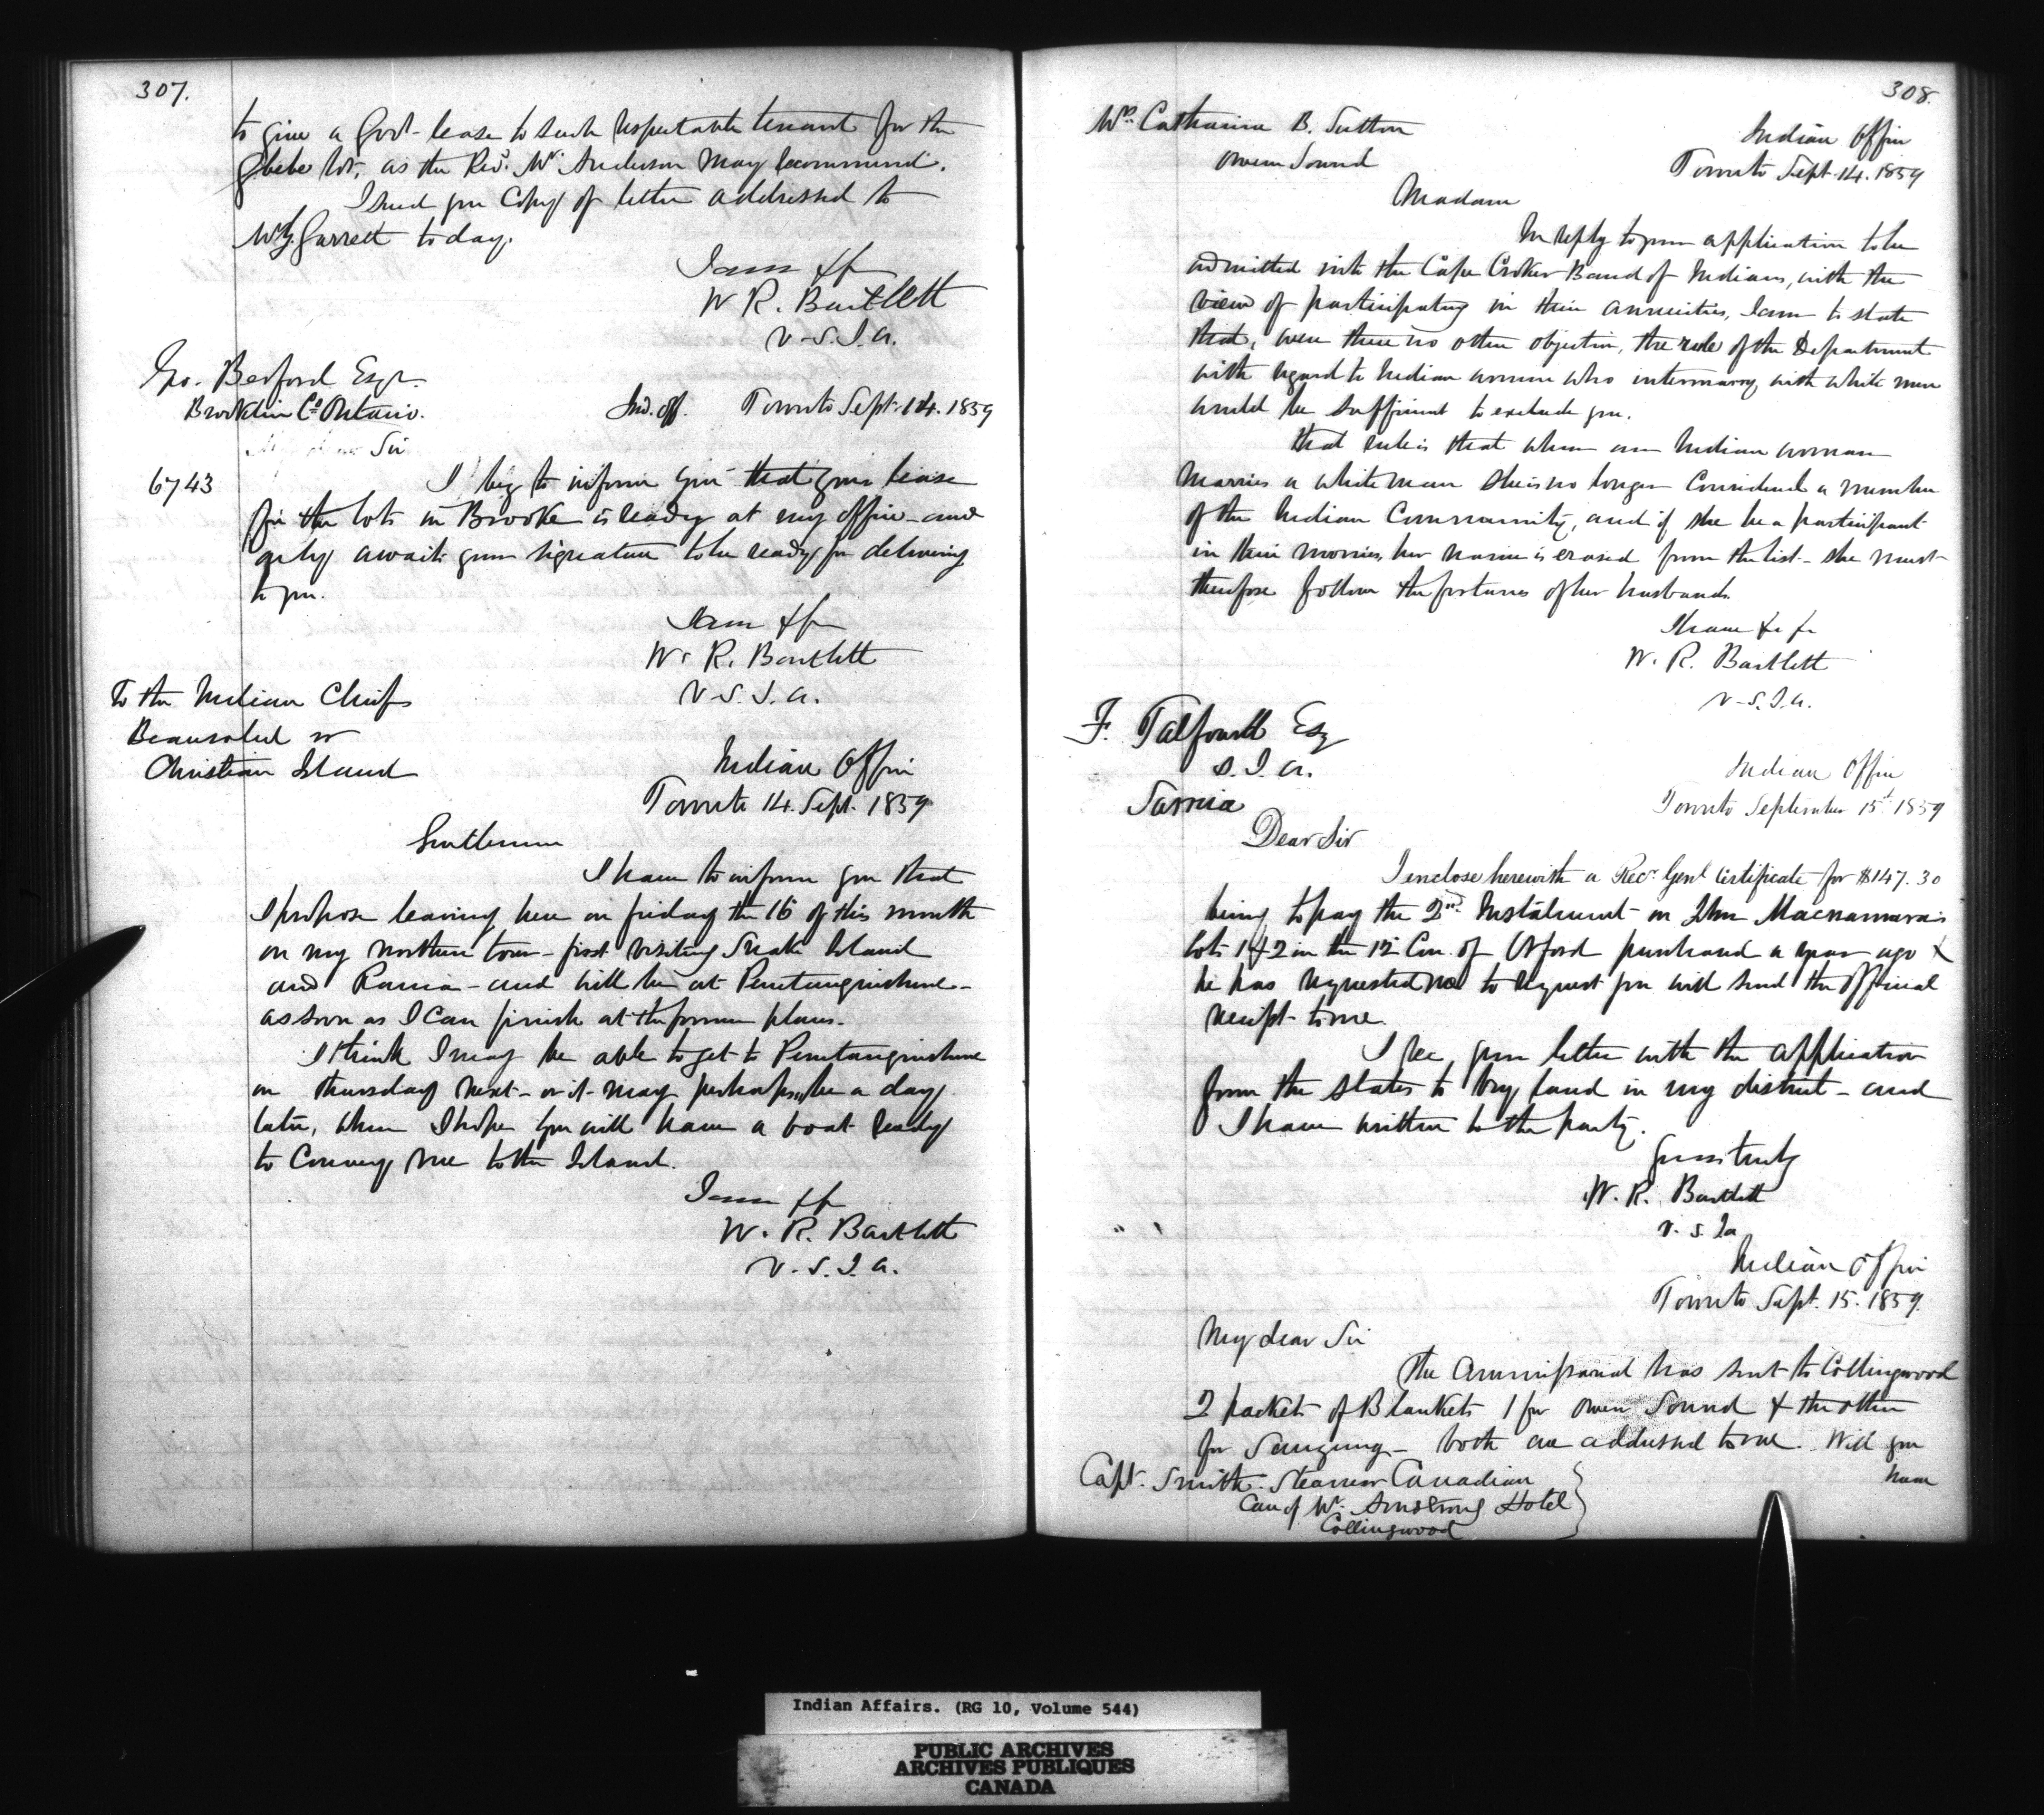 307.
to give a Govt lease to such respectable tenant for the
Glebe lot, as the Revd. Mr. Anderson may recommend.
I send you Copy of letter addressed to
Mr. Garrett today.
I am &c
W R. Bartlett
V.S.I.A.
Geo. Bedford Esqr.
Brooklin Co. Ontario.
Ind. off. Toronto Sept. 14. 1859
Sir
6743
I beg to inform you that your lease
for the lots in Brooke is ready at my office - and
only awaits your signature to be ready for delivery
to you.
I am &c
W. R. Bartlett
V.S.I.A.
To the Indian Chiefs
Beausoleil or
Christian Island
Indian Office
Toronto 14. Sept. 1859
Gentlemen
I have to inform you that
I propose leaving here on friday the 16 of this month
on my northern tour - first visiting Snake Island
and Rama - and will be at Penetanguishene -
as soon as I can finish at the former places.
I think I may be able to get to Penetanguishene
on thursday next - or it may perhaps be a day
later, when I hope you will have a boat ready
to Convey me to the Island.
I am &c
W. R. Bartlett
V.S.I.A.
308.
Mrs. Catharine B. Sutton
Owen Sound
Indian Office
Toronto Sept. 14. 1859
Madam
In reply to your application to be
admitted into the Cape Croker Band of Indians, with the
view of participating in their annuities, I am to state
that, were there no other objection, the rule of the Department
with regard to Indian women who intermarry with white men
would be sufficient to exclude you.
That rule is that when an Indian woman
marries a white man she is no longer Considered a member
of the Indian Community, and if she be a participant
in their monies, her name is erased from the list - she must
therefore follow the fortunes of her husband.
I have &c &c
W. R. Bartlett
V.S.I.A.
F. Talfourd Esq
S.I.A.
Sarnia
Indian Office
Toronto September 15th 1859
Dear Sir
I enclose herewith a Recr. Genl Certificate for $147.30
being to pay the 2nd. Instalment on John Macnamara's
lots 1 & 2 in the 12 Con. of Orford purchased a year ago &
he has requested me to request you will send the official
receipt to me.
I rec. your letter with the application
from the States to buy land in my district - and
I have written to the party.
Yours truly
W. R. Bartlett
V.S.Ia
Indian Office
Toronto Sept. 15. 1859.
My dear Sir
The Commissariat has sent to Collingwood
2 packets of Blankets 1 for Owen Sound & the other
for Saugeeng - both are addressed to me. Will you
have
Capt. Smith. Steamer Canadian
Care of Mr. Armstrong Hotel
Collingwood
Indian Affairs. (RG 10, Volume 544)
PUBLIC ARCHIVES
ARCHIVES PUBLIQUES
CANADA